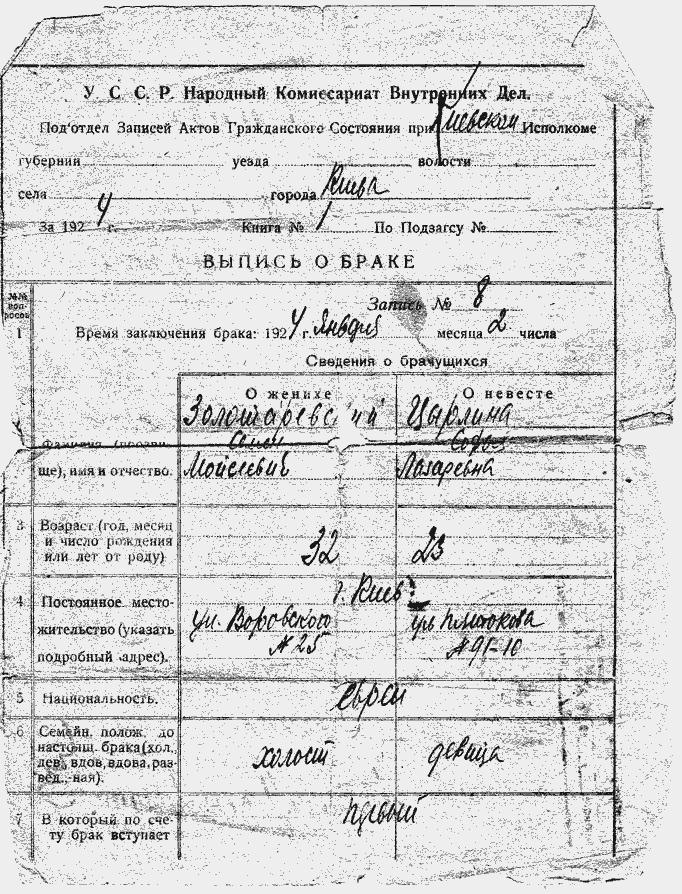 У. С. С. Р. Народный Комиссариат Внутренних Дел.
Под'отдел Записей Актов Гражданского Состояния при Киевском Исполкоме
губернии уезда волости
села города Киева
За 1924 г. Книга № 1 По Подзагсу №
ВЫПИСЬ О БРАКЕ
№№ вопросов
Запись № 8
1 Время заключения брака: 1924 г. Января месяца 2 числа
Сведения о брачущихся
О женихе О невесте
Золотаревский Цырлина
Семен Софья
Фамилия (прозви-
ще), имя и отчество. Моисеевич Лазаревна
3 Возраст (год, месяц
и число рождения
или лет от роду) 32 23
г. Киев
4 Постоянное место-
жительство (указать ул. Воровского ул.
подробный адрес). № 25 № 91-10
5 Национальность. евреи
6 Семейн. полож. до
настоящ. брака (хол.,
дев., вдов, вдова, раз- холост девица
вед.,-ная).
7 В который по сче- первый
ту брак вступает